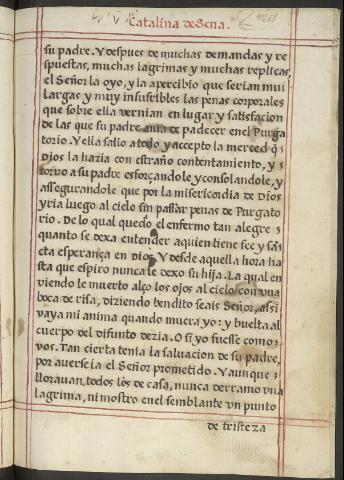 Catalina de Sena.
su padre. Y despues de muchas demandas y re
spuestas, muchas lagrimas y muchas replicas,
el Señor la oyo, y la apercibio que serian mui
largas y muy insufribles las penas corporales
que sobre ella vernian en lugar y satisfacion
de las que su padre auia de padecer en el Purga
torio. Y ella salio a todo y accepto la merced q̃
Dios la hazia con estraño contentamiento, y
torno a su padre esforçandole y consolandole, y
assegurandole que por la misericordia de Dios
yria luego al cielo sin passar penas de Purgato
rio. De lo qual quedo el enfermo tan alegre
quanto se dexa entender a quien tiene fee y sã
cta esperança en Dios. Y desde aquella hora ha
sta que espiro nunca le dexo su hija. La qual en
viendo le muerto alço los ojos al cielo con vna
boca de risa, diziendo bendito seais Señor, assi
vaya mi anima quando muera yo: y buelta al
cuerpo del difunto dezia. O si yo fuesse como
vos. Tan cierta tenia la saluacion de su padre,
por auersela el Señor prometido. Y aunque
llorauan todos los de casa, nunca derramo vna
lagrima, ni mostro en el semblante vn punto
de tristeza